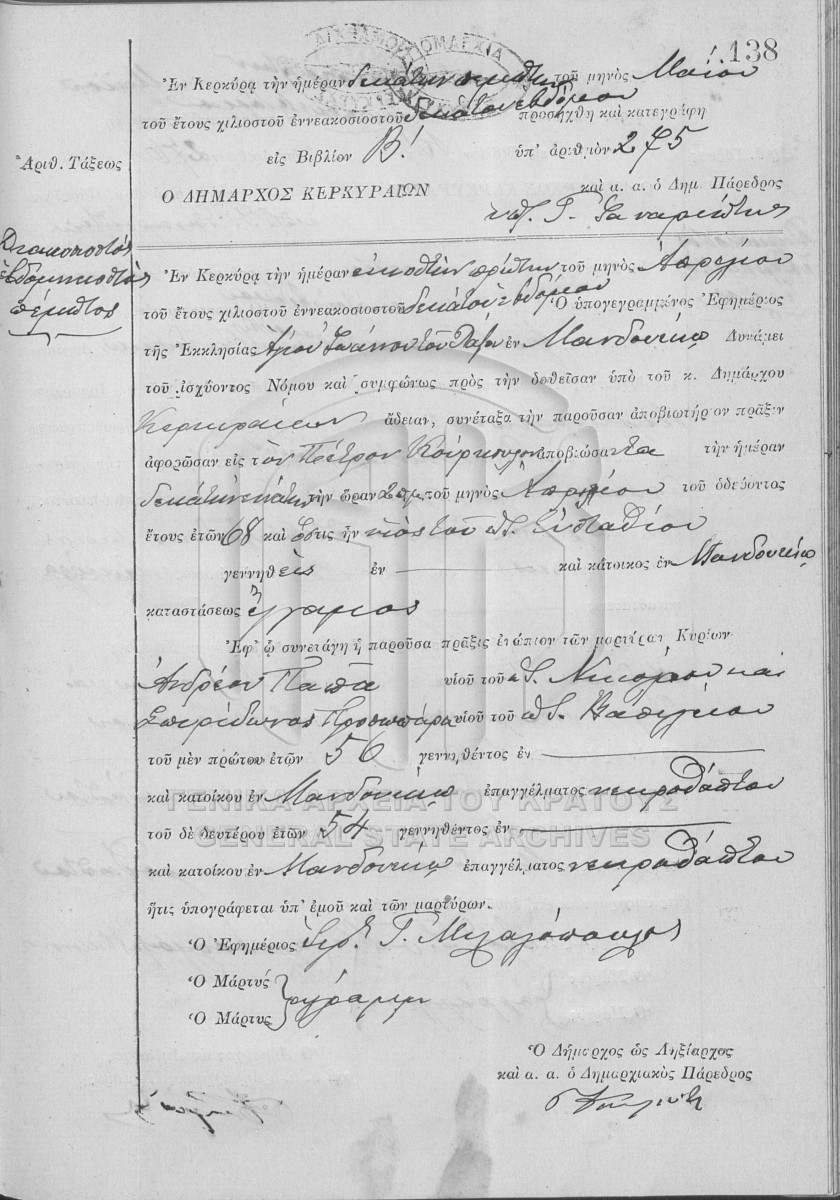 138
Ἐν Κερκύρᾳ τὴν ἡμέραν δεκάτην πέμπτην τοῦ μηνὸς Μαΐου
τοῦ ἔτους χιλιοστοῦ ἐννεακοσιοστοῦ δεκάτου ἑβδόμου προσήχθη καὶ κατεγράφη
Ἀριθ. Τάξεως
εἰς Βιβλίον Β! ὑπ' ἀριθμὸν 275
Ο ΔΗΜΑΡΧΟΣ ΚΕΡΚΥΡΑΙΩΝ καὶ α. α. ὁ Δημ. Πάρεδρος
Διακοσιοστός
ἑβδομηκοστός
πέμπτος
Ἐν Κερκύρᾳ τὴν ἡμέραν εἰκοστὴν πρώτην τοῦ μηνὸς Ἀπριλίου
τοῦ ἔτους χιλιοστοῦ ἐννεακοσιοστοῦ δεκάτου ἑβδόμου Ὁ ὑπογεγραμμένος Ἐφημέριος
τῆς Ἐκκλησίας Ἁγίου Ἰωάννου τοῦ ἐν Μανδουκίῳ Δυνάμει
τοῦ ἰσχύοντος Νόμου καὶ συμφώνως πρὸς τὴν δοθεῖσαν ὑπὸ τοῦ κ. Δημάρχου
Κερκυραίων ἄδειαν, συνέταξα τὴν παροῦσαν ἀποβιωτήριον πρᾶξιν
ἀφορῶσαν εἰς τὸν Πέτρον Κούρκουλον ἀποβιώσαντα τὴν ἡμέραν
δεκάτην ἐνάτην τὴν ὥραν 2 τοῦ μηνὸς Ἀπριλίου τοῦ ὁδεύοντος
ἔτους ἐτῶν 68 καὶ ὅστις ἦν υἱὸς τοῦ π. Εὐσταθίου
γεννηθεὶς ἐν καὶ κάτοικος ἐν Μανδουκίῳ
καταστάσεως ἔγγαμος
Ἐφ' ᾧ συνετάγη ἡ παροῦσα πρᾶξις ἐνώπιον τῶν μαρτύρων Κυρίων
Ἀνδρέου Παππᾶ υἱοῦ τοῦ π. Νικολάου καὶ
Σπυρίδωνος Προσωπάρα υἱοῦ τοῦ π. Βασιλείου
τοῦ μὲν πρώτου ἐτῶν 56 γεννηθέντος ἐν
καὶ κατοίκου ἐν Μανδουκίῳ ἐπαγγέλματος νεκροθάπτου
ΓΕΝΙΚΑ ΑΡΧΕΙΑ ΤΟΥ ΚΡΑΤΟΥΣ
τοῦ δὲ δευτέρου ἐτῶν 54 γεννηθέντος ἐν
GENERAL STATE ARCHIVES
καὶ κατοίκου ἐν Μανδουκίῳ ἐπαγγέλματος νεκροθάπτου
ἥτις ὑπογράφεται ὑπ' ἐμοῦ καὶ τῶν μαρτύρων.
Ὁ Ἐφημέριος Ἱερ. Γ. Μιχαλόπουλος
Ὁ Μάρτυς
ἀγράμμ
Ὁ Μάρτυς
Ὁ Δήμαρχος ὡς Ληξίαρχος
καὶ α. α. ὁ Δημαρχιακὸς Πάρεδρος